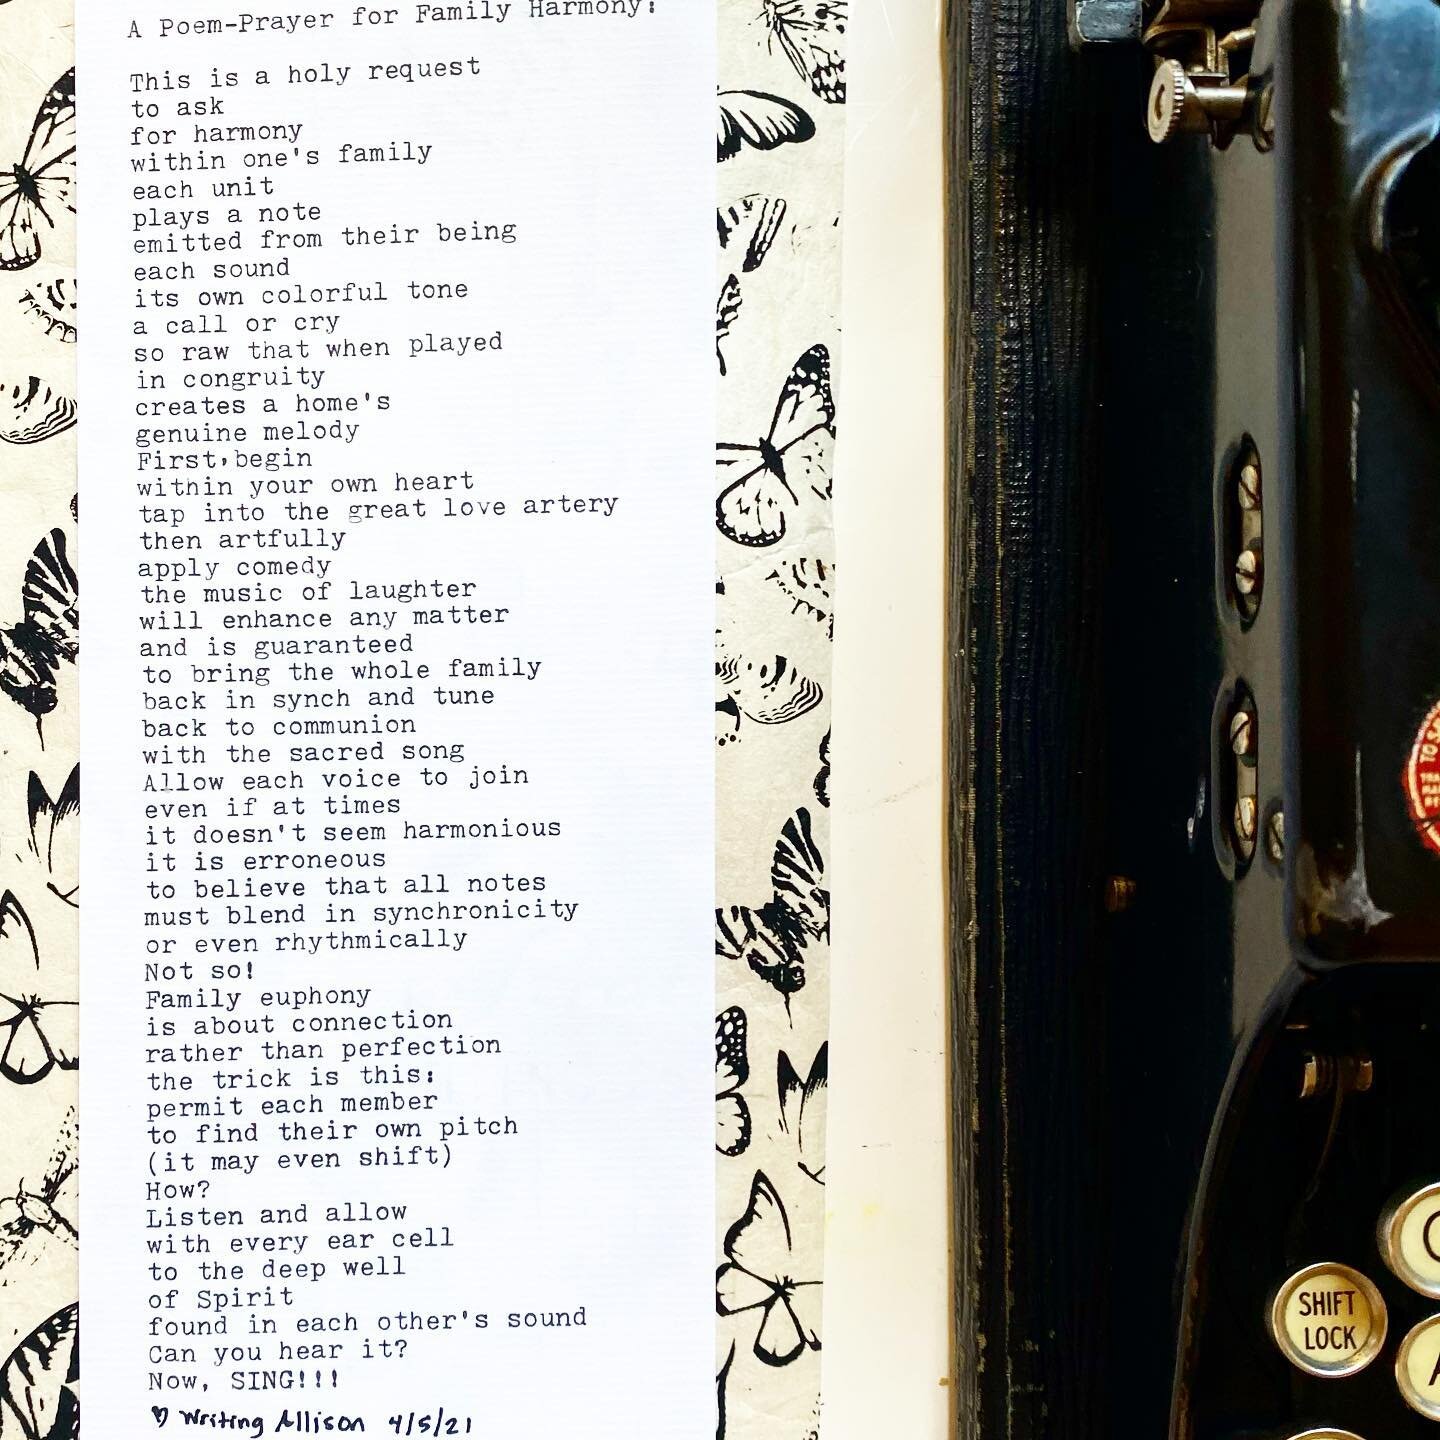 A Poem-Prayer for Family Harmony:
This is a holy request
to ask
for harmony
within one's family
each unit
plays a note
emitted from their being
each sound
its own colorful tone
a call or cry
so raw that when played
in congruity
creates a home's
genuine melody
First,begin
within your own heart
tap into the great love artery
then artfully
apply comedy
the music of laughter
will enhance any matter
and is guaranteed
to bring the whole family
back in synch and tune
back to communion
with the sacred song
Allow each voice to join
even if at times
it doesn't seem harmonious
it is erroneous
to believe that all notes
must blend in synchronicity
or even rhythmically
Not so!
Family euphony
is about connection
rather than perfection
the trick is this:
permit each member
to find their own pitch
(it may even shift)
How?
Listen and allow
with every ear cell
to the deep well
of Spirit
found in each other's sound
Can you hear it?
Now, SING!!!
♡ Writing Allison 4/5/21
SHIFT
LOCK
A